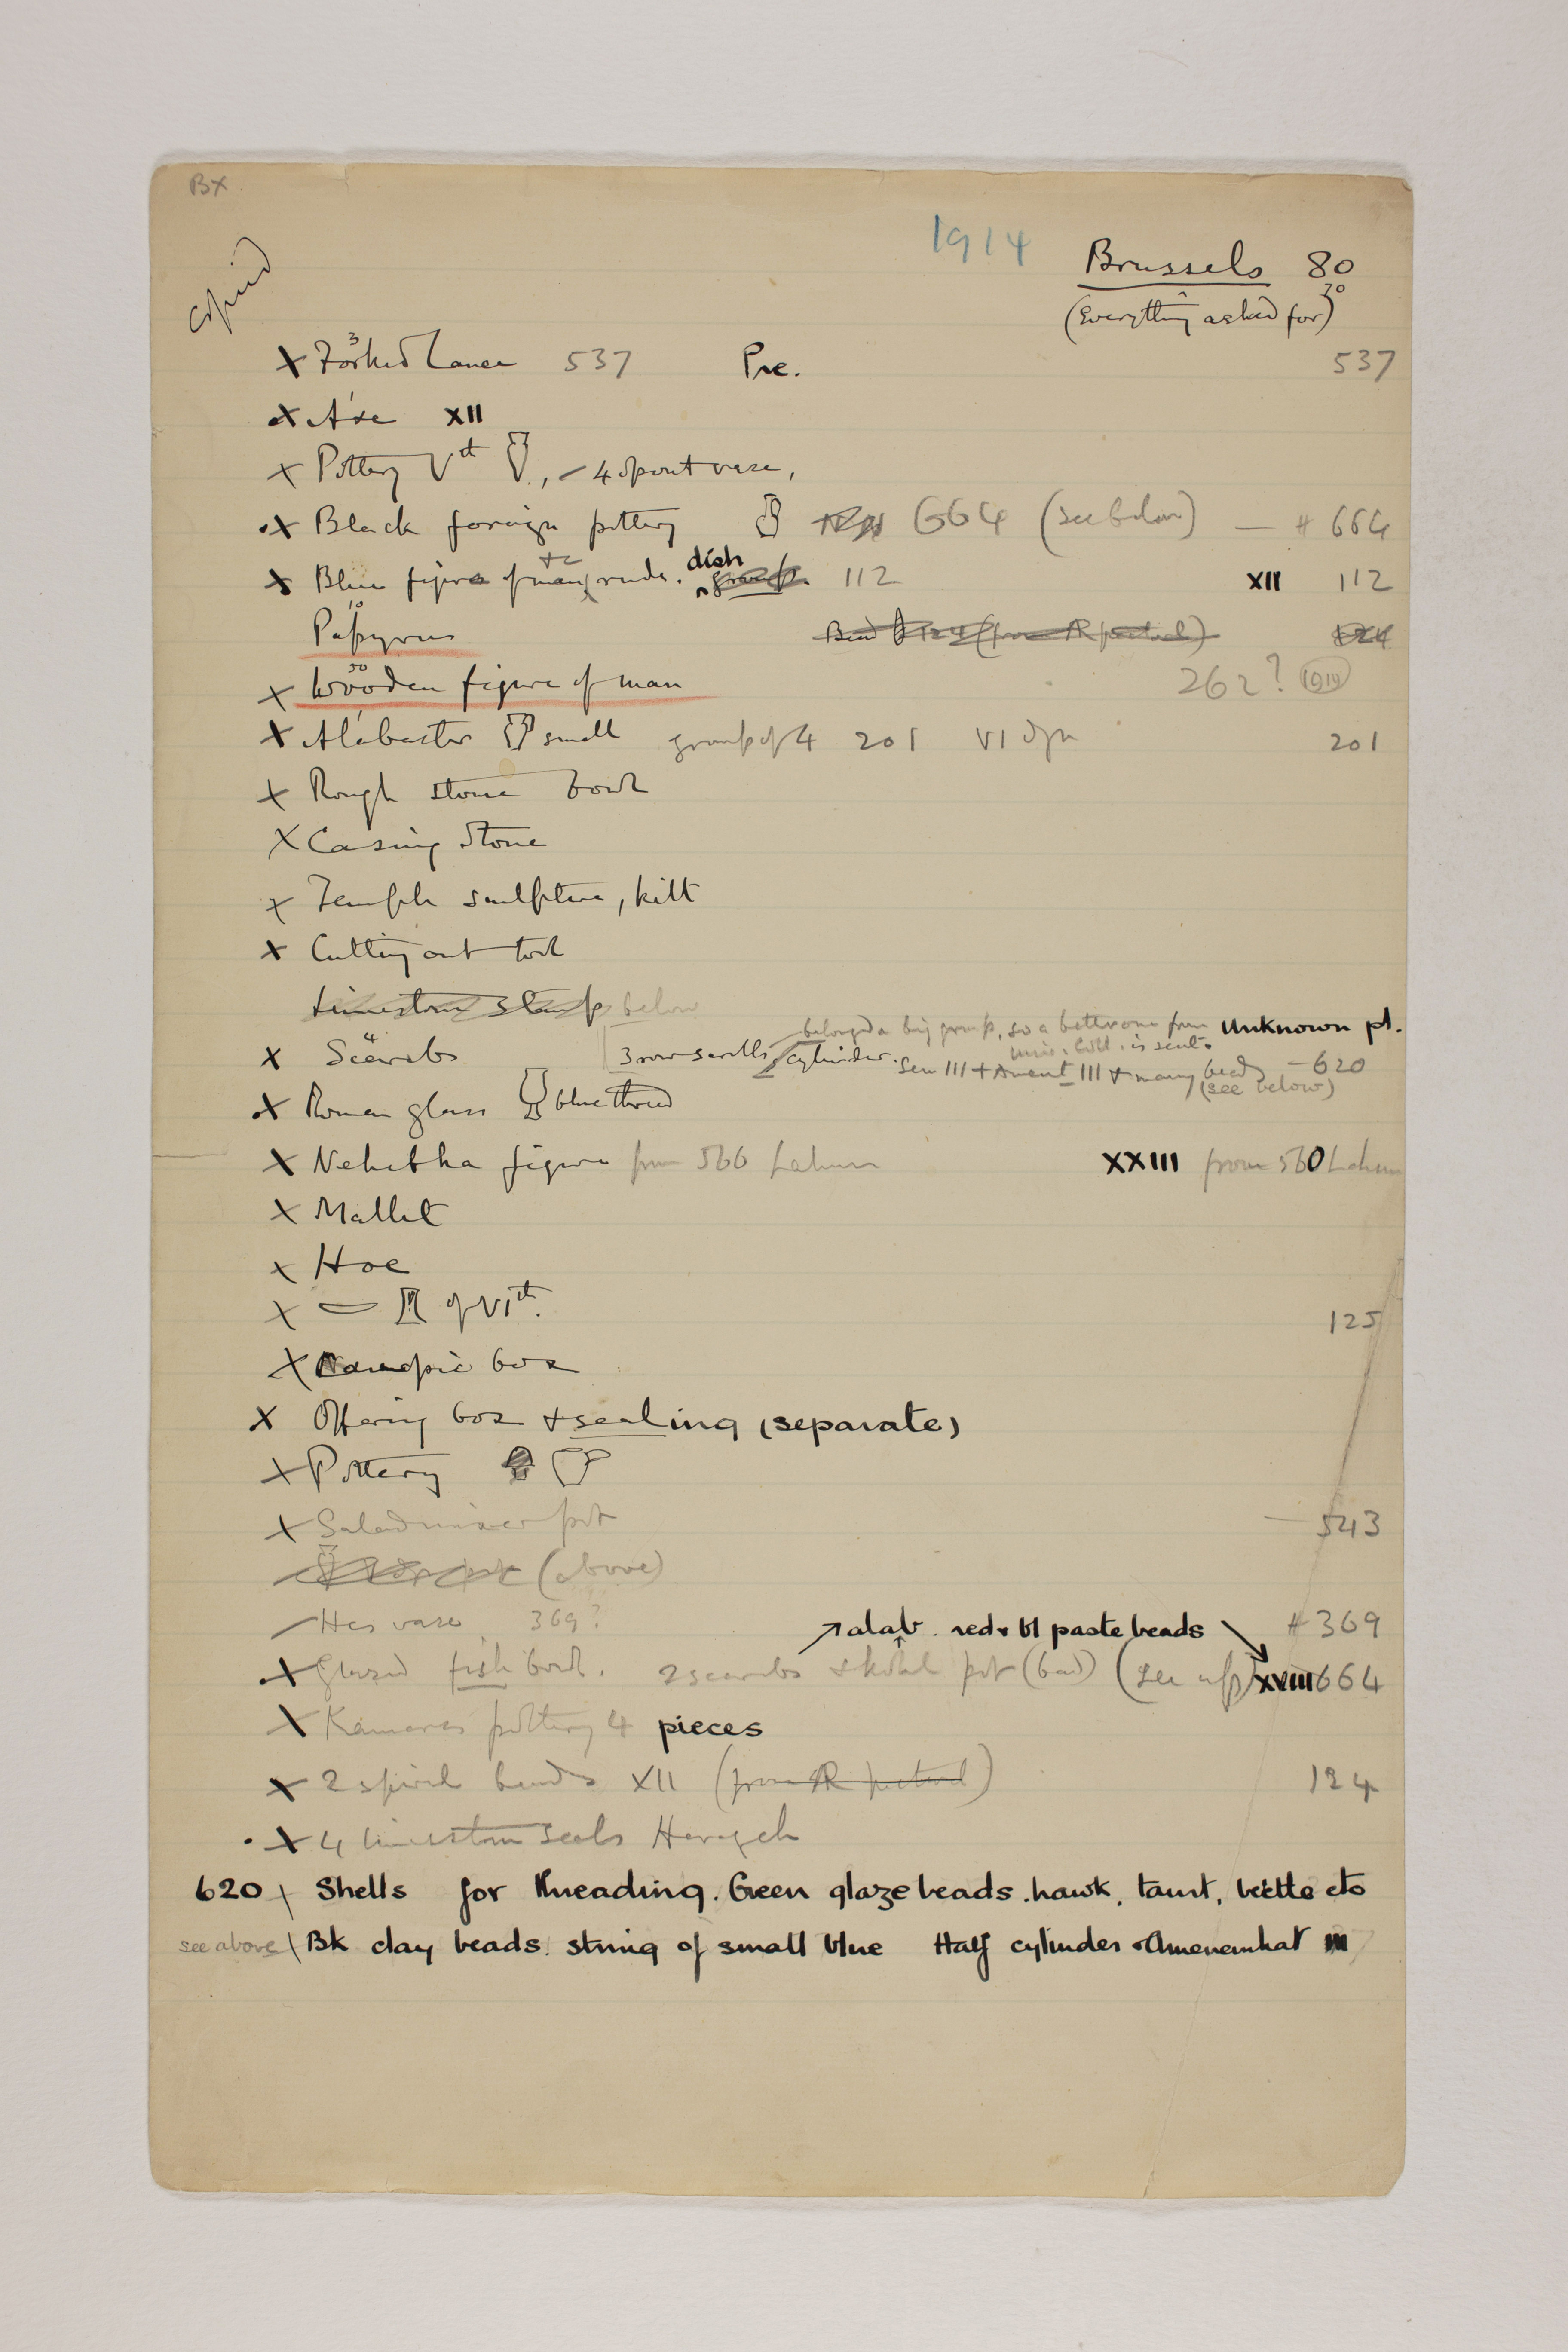 BX
copied
1914 Brussels 80
(Everything asked for) 30
X Forked lance 3 537 Pre. 537
X Axe 1 XII
X Pottery Vth , – 4 spout vase,
X Black foreign pottery 664 (see below) — # 664
X Blue figure of man rude. dish 112 XII 112
Papyrus 10
X Wooden figure of man 50 262? 1914
X Alabaster small group of 4 201 VI dyn 201
X Rough stone bowl
X Casing stone
X Temple sculpture, kilt
X Cutting out tool
Limestone stamp below
belonged a big group, so a better one from Unknown pl.
Univ. Coll. is sent.
X Scarabs 4 3 row scrolls / cylinder. Sen III + Ament III + many beads – 620
(see below)
X Roman glass blue thread
X Nehebka figure from 560 Lahun XXIII from 560 Lahun
X Mallet
X Hoe
X of VIth. 125
X Canopic box
X Offering box + sealing (separate)
X Pottery
X Salad mixer pot — 543
(above)
Hes vase 369? # 369
alab. red + bl paste beads
X Glazed fish bowl. 2 scarabs + kohl pot (bad) (see up) XVIII 664
X Kamares pottery 4 pieces
X 2 spiral beads XII (from R petrie) 124
X 4 limestone seals Harageh
620 Shells for threading. Green glaze beads. hawk, taurt, beetle etc
see above Bk clay beads. string of small blue Half cylinder Amenemhat III